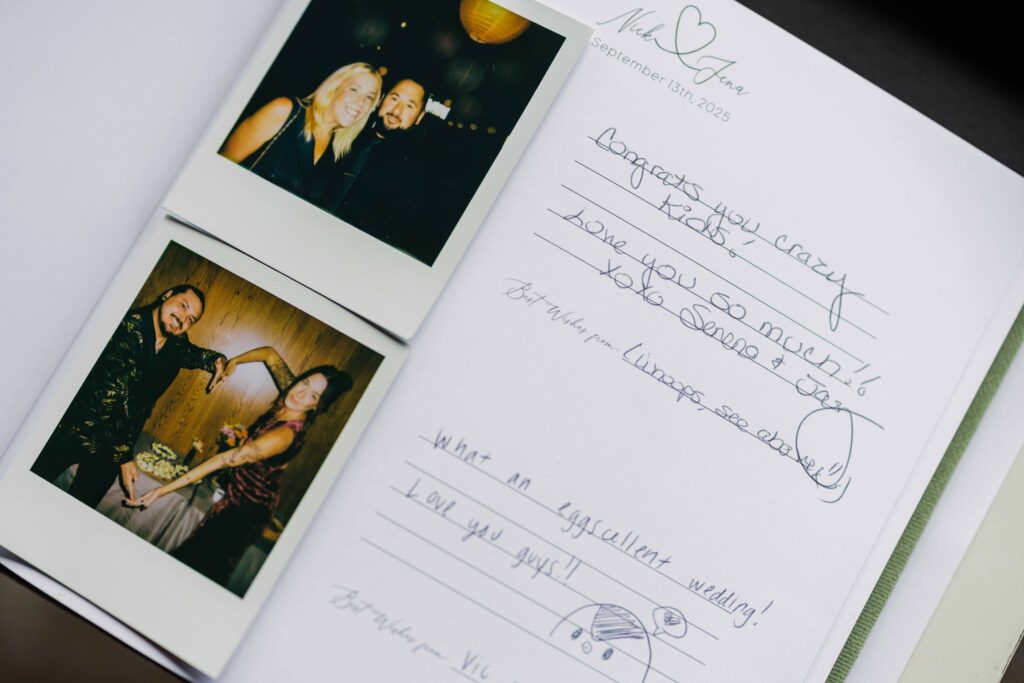 Nick Jena
September 13th, 2025
Congrats you crazy
kids!
Love you so much!!
XOXO Serena & Jax
Best Wishes from
see above!!)
What an eggscellent wedding!
Love you guys!!
Best Wishes from Vic